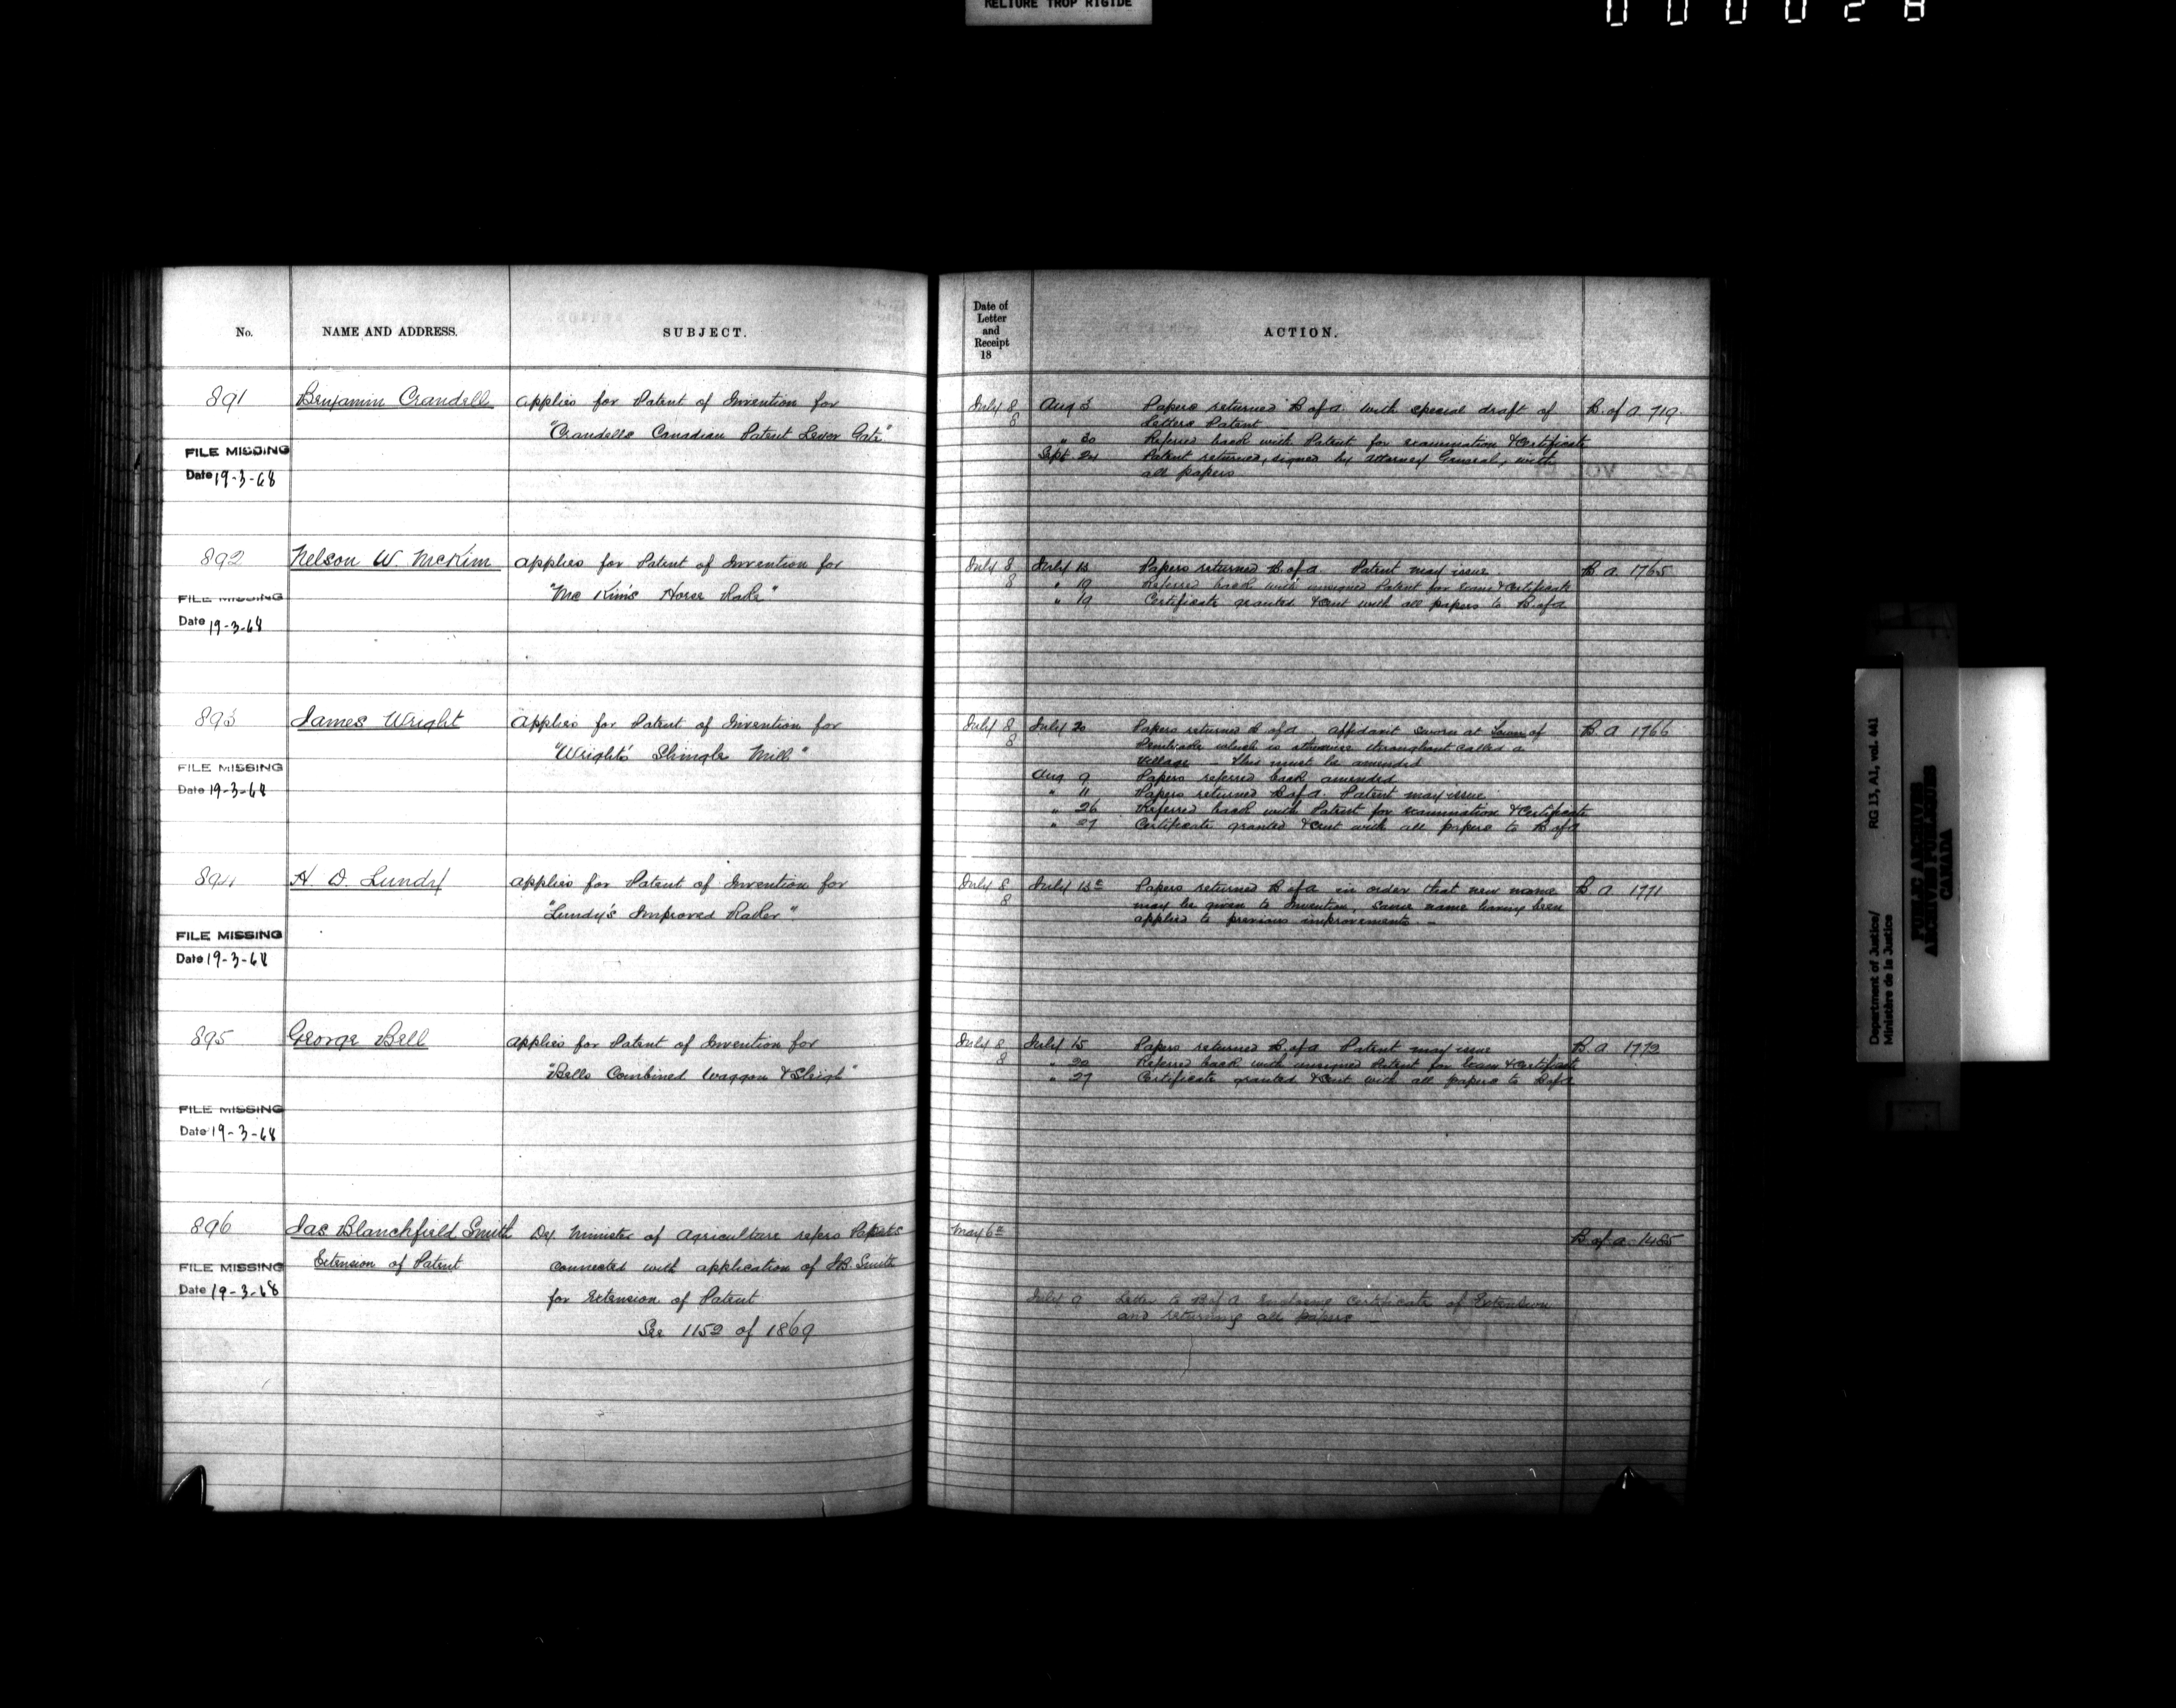 RELIURE TROP RIGIDE
No. NAME AND ADDRESS. SUBJECT.
891 Benjamin Crandell applies for Patent of Invention for
"Crandells Canadian Patent Lever Gate"
FILE MISSING
Date 19-3-68
892 Nelson W. McKim applies for Patent of Invention for
"Mc Kim's Horse Rake"
FILE MISSING
Date 19-3-68
893 James Wright applies for Patent of Invention for
"Wright's Shingle Mill"
FILE MISSING
Date 19-3-68
894 H. D. Lundy applies for Patent of Invention for
"Lundy's Improved Raker"
FILE MISSING
Date 19-3-68
895 George Bell applies for Patent of Invention for
"Bells Combined Waggon & Sleigh"
FILE MISSING
Date 19-3-68
896 Jas Blanchfield Smith Dy. Minister of Agriculture refers
Extension of Patent connected with application of J.B. Smith
FILE MISSING
Date 19-3-68
for Extension of Patent
See 1152 of 1869
Date of
Letter
and
Receipt
18
ACTION.
July 8 Aug 3 Papers returned B of A. with special draft of B. of A 719
8 Letters Patent
" 30 Referred back with Patent for examination & Certificate
Sept 24 Patent returned, signed by Attorney General, with
all papers
July 8 July 13 Papers returned B. of A Patent may issue B. A. 1765
8 " 19 Referred back with unsigned Patent for Exam & Certificate
" 19 Certificate granted & sent with all papers to B of A
July 8 July 20 Papers returned B of A Affidavit sworn at Town of B. A 1766
8 which is otherwise throughout called a
Village – This must be amended
Aug 9 Papers referred back amended
" 11 Papers returned B of A Patent may issue
" 26 Referred back with Patent for examination & Certificate
" 27 Certificate granted & sent with all papers to B of A
July 8 July 13th Papers returned B of A in order that new name B A 1771
8 may be given to Invention, same name having been
applied to previous improvements. –
July 8 July 15 Papers returned B. of A Patent may issue B. A 1772
8 " 20 Referred back with unsigned Patent for Exam & Certificate
" 27 Certificate granted & sent with all papers to B of A
May 6th B. of A. 1485
July 9 Letter to B of A enclosing Certificate of Extension
and returning all papers –
Department of Justice/ RG 13, A1, vol. 441
Ministère de la Justice
PUBLIC ARCHIVES
ARCHIVES PUBLIQUES
CANADA